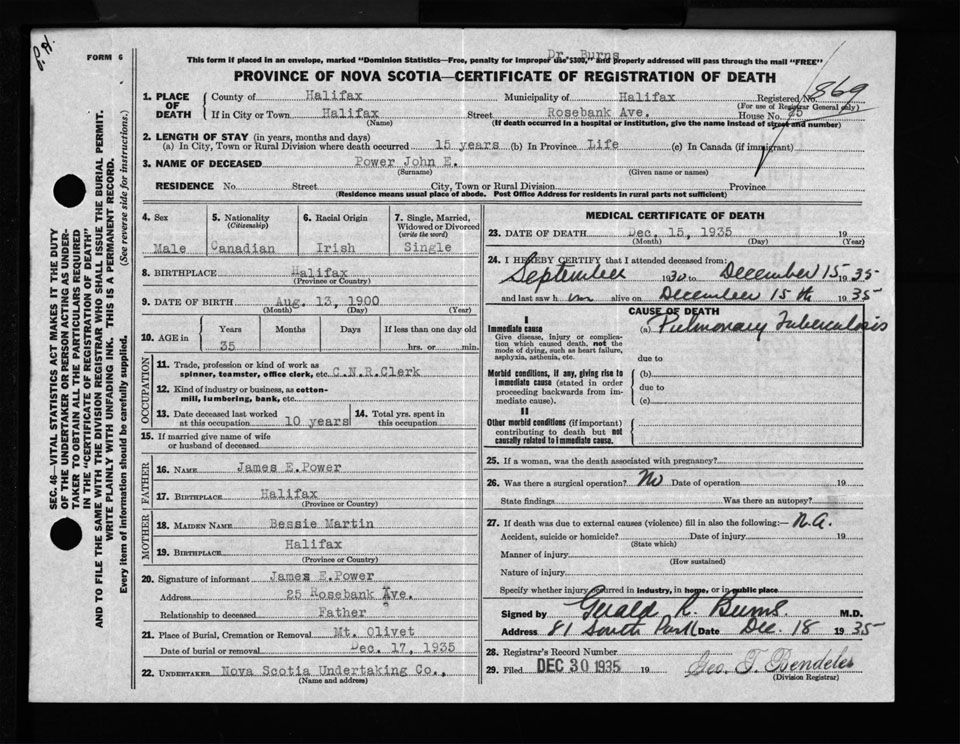 P. H.
FORM 6
Dr. Burns
This form if placed in an envelope, marked "Dominion Statistics—Free, penalty for improper use $300," and properly addressed will pass through the mail "FREE"
PROVINCE OF NOVA SCOTIA—CERTIFICATE OF REGISTRATION OF DEATH
SEC. 46—VITAL STATISTICS ACT MAKES IT THE DUTY
OF THE UNDERTAKER OR PERSON ACTING AS UNDER-
TAKER TO OBTAIN ALL THE PARTICULARS REQUIRED
IN THE "CERTIFICATE OF REGISTRATION OF DEATH"
AND TO FILE THE SAME WITH THE DIVISION REGISTRAR WHO SHALL ISSUE THE BURIAL PERMIT.
WRITE PLAINLY WITH UNFADING INK. THIS IS A PERMANENT RECORD.
Every item of information should be carefully supplied. (See reverse side for instructions.)
1. PLACE OF DEATH County of Halifax Municipality of Halifax Registered No. 869
(For use of Registrar General only)
If in City or Town Halifax Street Rosebank Ave. House No. 25
(Name) (If death occurred in a hospital or institution, give the name instead of street and number)
2. LENGTH OF STAY (in years, months and days)
(a) In City, Town or Rural Division where death occurred 15 years (b) In Province Life (c) In Canada (if immigrant)
3. NAME OF DECEASED Power John E.
(Surname) (Given name or names)
RESIDENCE No. Street City, Town or Rural Division Province
(Residence means usual place of abode. Post Office Address for residents in rural parts not sufficient)
4. Sex 5. Nationality (Citizenship) 6. Racial Origin 7. Single, Married, Widowed or Divorced (write the word)
Male Canadian Irish Single
8. BIRTHPLACE Halifax
(Province or Country)
9. DATE OF BIRTH Aug. 13, 1900
(Month) (Day) (Year)
10. AGE in Years Months Days If less than one day old
35 hrs. or min.
OCCUPATION
11. Trade, profession or kind of work as
spinner, teamster, office clerk, etc. C.N.R.Clerk
12. Kind of industry or business, as cotton-
mill, lumbering, bank, etc.
13. Date deceased last worked at this occupation 10 years 14. Total yrs. spent in this occupation
15. If married give name of wife
or husband of deceased
FATHER
16. NAME James E.Power
17. BIRTHPLACE Halifax
(Province or Country)
MOTHER
18. MAIDEN NAME Bessie Martin
19. BIRTHPLACE Halifax
(Province or Country)
20. Signature of informant James E.Power
Address 25 Rosebank Ave.
Relationship to deceased Father
21. Place of Burial, Cremation or Removal Mt. Olivet
Date of burial or removal Dec. 17, 1935
22. UNDERTAKER Nova Scotia Undertaking Co.,
(Name and address)
MEDICAL CERTIFICATE OF DEATH
23. DATE OF DEATH Dec. 15, 1935 19
(Month) (Day) (Year)
24. I HEREBY CERTIFY that I attended deceased from:
September 1930 to December 15 1935
and last saw h im alive on December 15th 1935
CAUSE OF DEATH
I
Immediate cause (a) Pulmonary Tuberculosis
Give disease, injury or complica-
tion which caused death, not the
mode of dying, such as heart failure,
asphyxia, asthenia, etc. due to
Morbid conditions, if any, giving rise to (b)
immediate cause (stated in order due to
proceeding backwards from im-
mediate cause). (c)
II
Other morbid conditions (if important)
contributing to death but not
causally related to immediate cause.
25. If a woman, was the death associated with pregnancy?
26. Was there a surgical operation? No Date of operation 19
State findings Was there an autopsy?
27. If death was due to external causes (violence) fill in also the following:— N.A.
Accident, suicide or homicide? Date of injury 19
(State which)
Manner of injury
(How sustained)
Nature of injury
Specify whether injury occurred in industry, in home, or in public place
Signed by Gerald R. Burns M.D.
Address 81 South Park Date Dec. 18 1935
28. Registrar's Record Number
29. Filed DEC 30 1935 19 Geo. T. Bendelee
(Division Registrar)